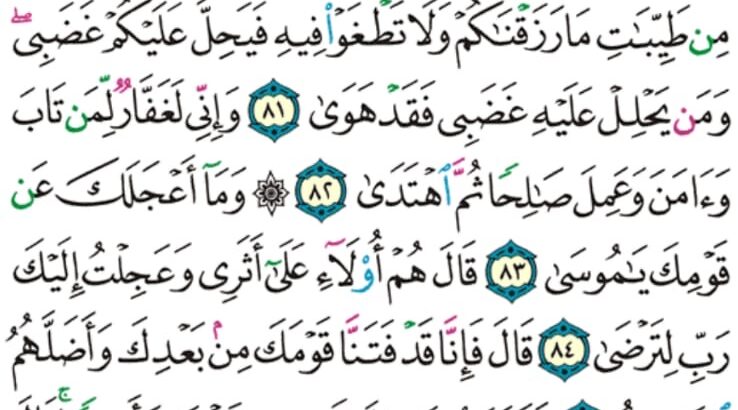 مِن طَيِّبَـٰتِ مَا رَزَقْنَـٰكُمْ وَلَا تَطْغَوْا۟ فِيهِ فَيَحِلَّ عَلَيْكُمْ غَضَبِى ۖ
وَمَن يَحْلِلْ عَلَيْهِ غَضَبِى فَقَدْ هَوَىٰ ٨١ وَإِنِّى لَغَفَّارٌ لِّمَن تَابَ
وَءَامَنَ وَعَمِلَ صَـٰلِحًا ثُمَّ ٱهْتَدَىٰ ٨٢ ۞ وَمَآ أَعْجَلَكَ عَن
قَوْمِكَ يَـٰمُوسَىٰ ٨٣ قَالَ هُمْ أُو۟لَآءِ عَلَىٰٓ أَثَرِى وَعَجِلْتُ إِلَيْكَ
رَبِّ لِتَرْضَىٰ ٨٤ قَالَ فَإِنَّا قَدْ فَتَنَّا قَوْمَكَ مِنۢ بَعْدِكَ وَأَضَلَّهُمُ